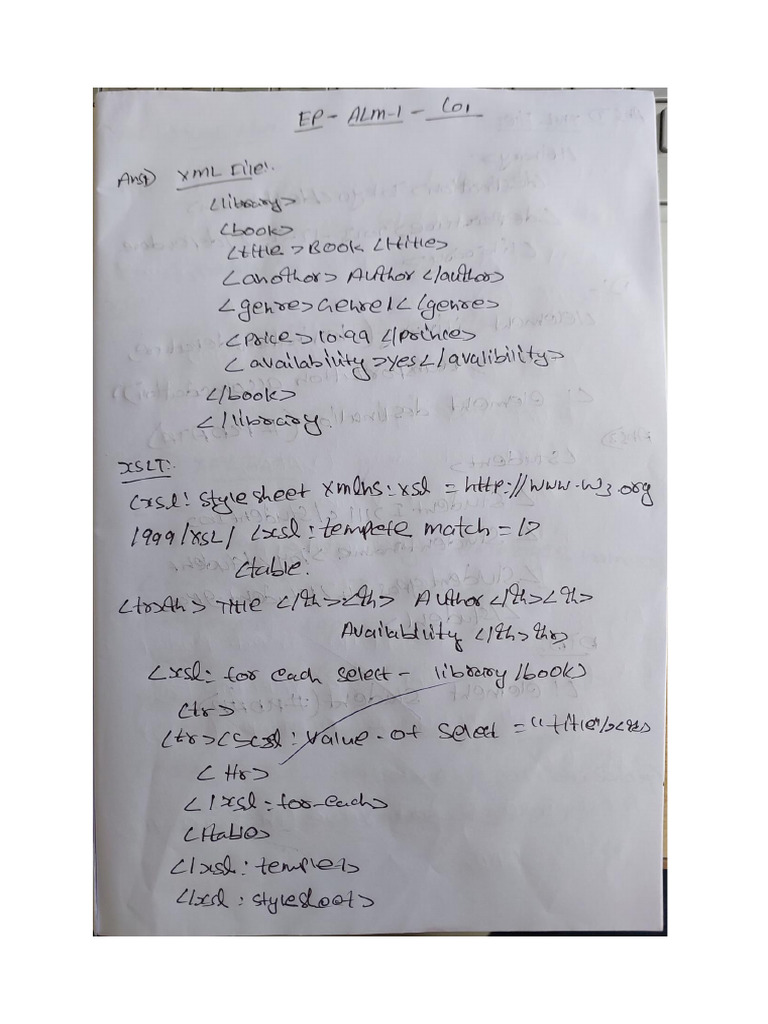 EP - ALM-1 - CO1
Ans1) XML File:
<library>
<book>
<title>Book </title>
<anothor> Author </author>
<genre>Genre1</genre>
<price>10.99 </prince>
<availability>yes</avalibility>
</book>
</library.
XSLT:
<xsl: stylesheet xmlns:xsl = http://www.w3.org
1999/XSL/ <xsl: templete match = />
<table.
<tr>th> Title </th><th> Author </th><th>
Availability </th>
<xsl: for each select - library/book>
<tr>
<tr> : value-of select = "title"/>
</tr>
</xsl: for-each>
</table>
</xsl: templet>
</xsl: stylesheet>